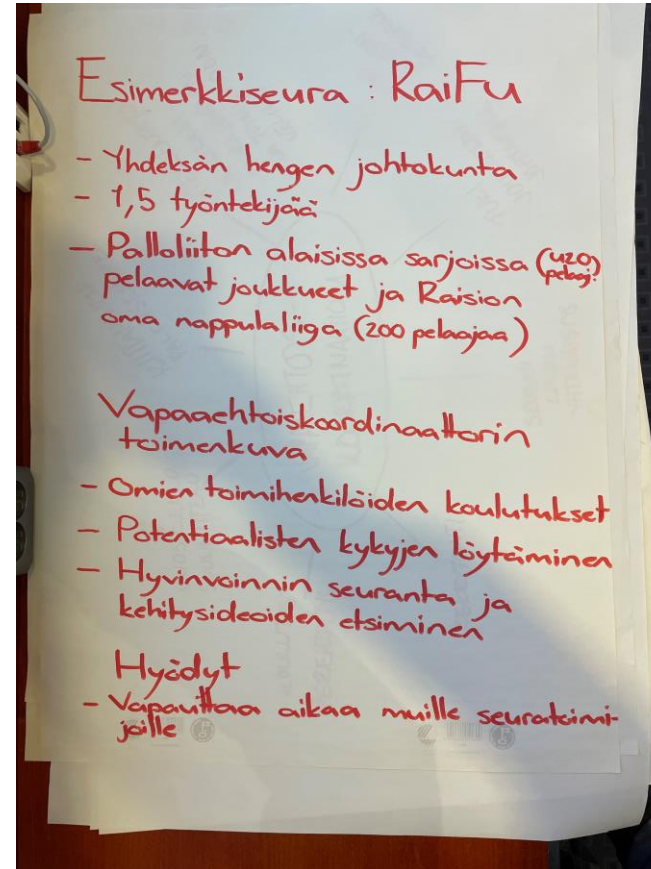 Esimerkkiseura : RaiFu
- Yhdeksän hengen johtokunta
- 1,5 työntekijää
- Palloliiton alaisissa sarjoissa (420 pelaaj.)
pelaavat joukkueet ja Raision
oma nappulaliiga (200 pelaajaa)
Vapaaehtoiskoordinaattorin
toimenkuva
- Omien toimihenkilöiden koulutukset
- Potentiaalisten kykyjen löytäminen
- Hyvinvoinnin seuranta ja
kehitysideoiden etsiminen
Hyödyt
- Vapauttaa aikaa muille seuratoimi-
joille